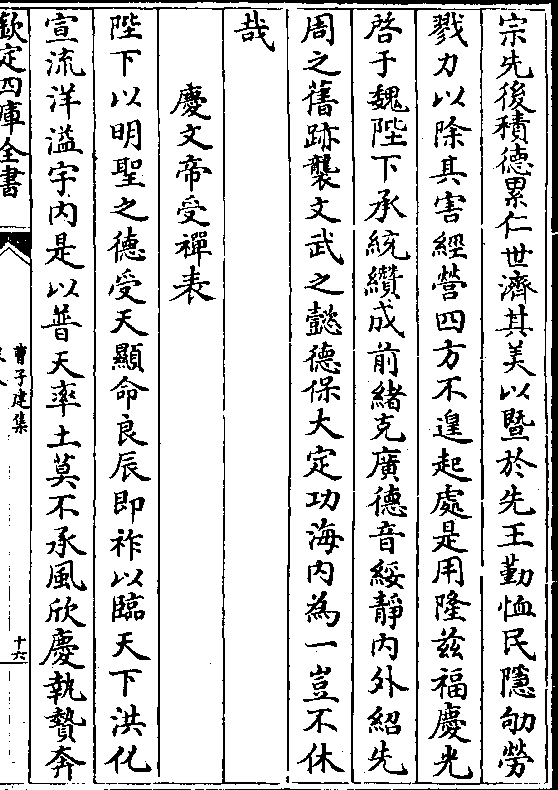 宗先後積德累仁世濟其美以暨於先王勤恤民隱劬勞
戮力以除其害經營四方不遑起處是用隆兹福慶光
啓于魏陛下承統纘成前緒克廣德音綏靜内外紹先
周之舊跡襲文武之懿德保大定功海内為一豈不休
哉
慶文帝受禪表
陛下以明聖之德受天顯命良辰即祚以臨天下洪化
宣流洋溢宇内是以普天率土莫不承風欣慶執贄奔
欽定四庫全書
曹子建集
十六